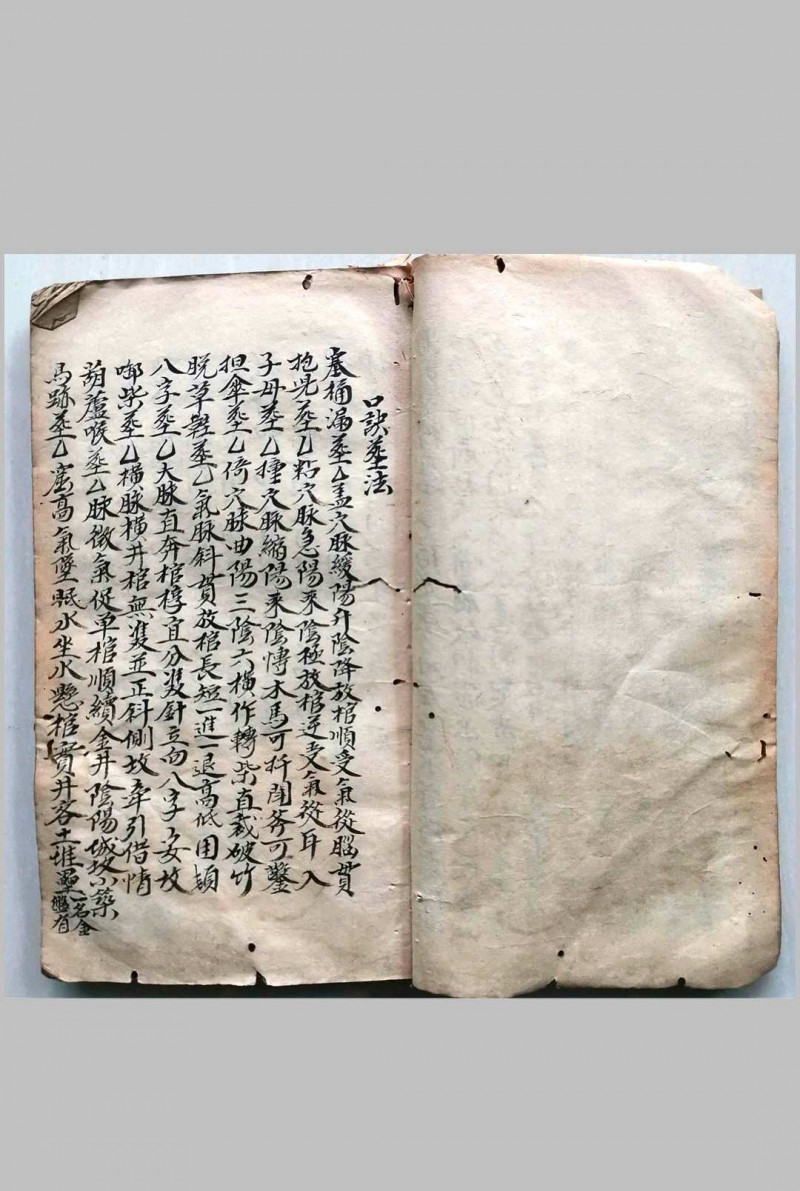 口訣葬法
塞桶漏葬乙盖穴脉緩陽升陰降放棺順受氣從腦貫
抱児葬乙粘穴脉急陽來陰極放棺逆受氣從耳入
子母葬乙撞穴脉縮陽來陰慱木馬可扦開斧可鑿
担傘葬乙倚穴脉曲陽三陰六橫作轉柴直裁破竹
脱草鞋葬乙氣脉斜貫放棺長短一進一退高低用頓
八字葬乙大脉直奔棺椁宜分雙針立向八字安坟
啣柴葬乙橫脉橫井棺無雙並正斜側坟牽引借情
葫蘆喉葬乙脉微氣促单棺順續金井陰陽城坟築
馬跡葬乙窟高氣墜眠水坐水懸棺實井客土堆壘一名金盤有